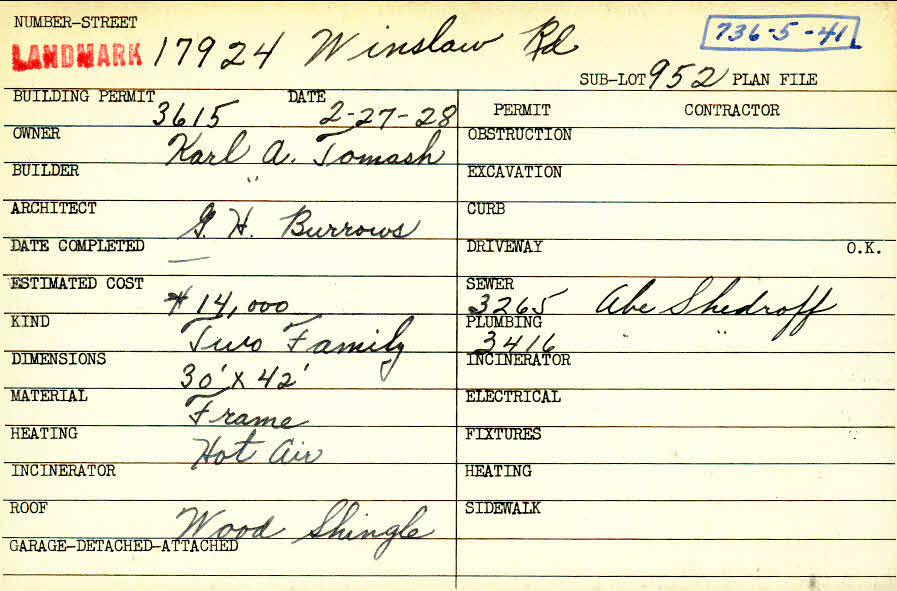 NUMBER-STREET
LANDMARK 17924 Winslow Rd 736-5-41
SUB-LOT 952 PLAN FILE
BUILDING PERMIT 3615 DATE 2-27-28
PERMIT CONTRACTOR
OWNER Karl A. Tomash
OBSTRUCTION
BUILDER "
EXCAVATION
ARCHITECT G. H. Burrows
CURB
DATE COMPLETED —
DRIVEWAY O.K.
ESTIMATED COST $14,000
SEWER 3265 Abe Shedroff
KIND Two Family
PLUMBING 3416 " "
DIMENSIONS 30' x 42'
INCINERATOR
MATERIAL Frame
ELECTRICAL
HEATING Hot Air
FIXTURES
INCINERATOR
HEATING
ROOF Wood Shingle
SIDEWALK
GARAGE-DETACHED-ATTACHED